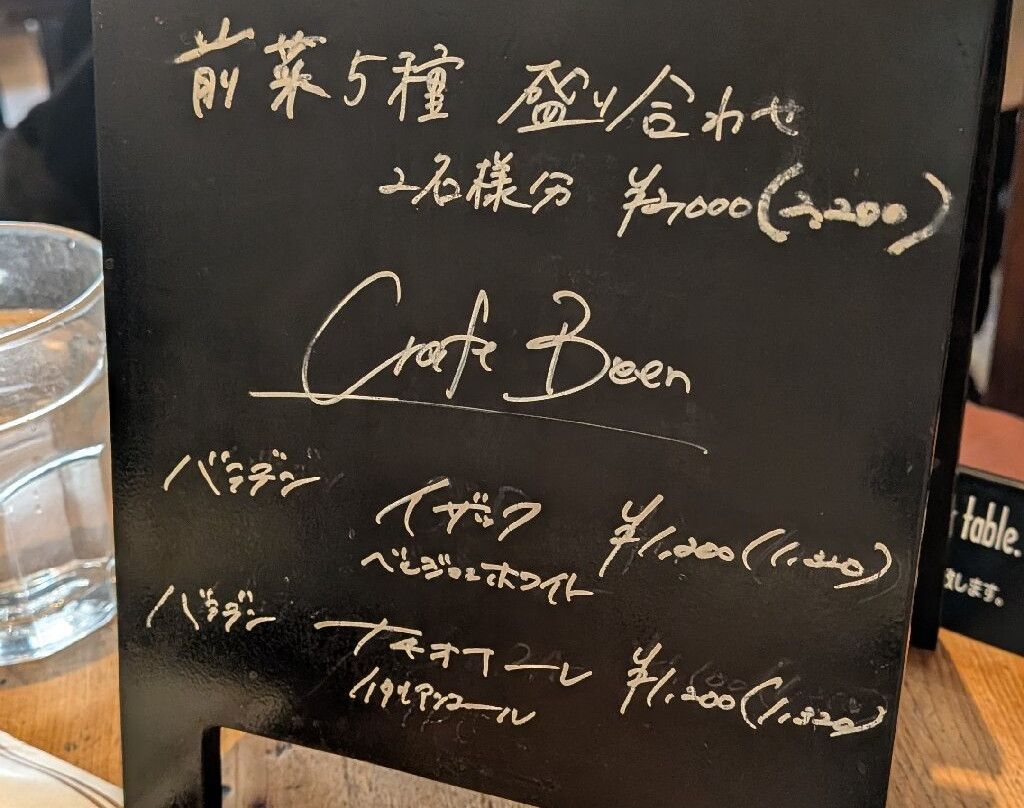 前菜5種 盛り合わせ
2名様分 ¥2,000(2,200)
Craft Beer
バラデン イザック ¥1,200(1,320)
ベルジャンホワイト
バラデン ナチオナーレ ¥1,200(1,320)
イタリアンエール
table.
致します。